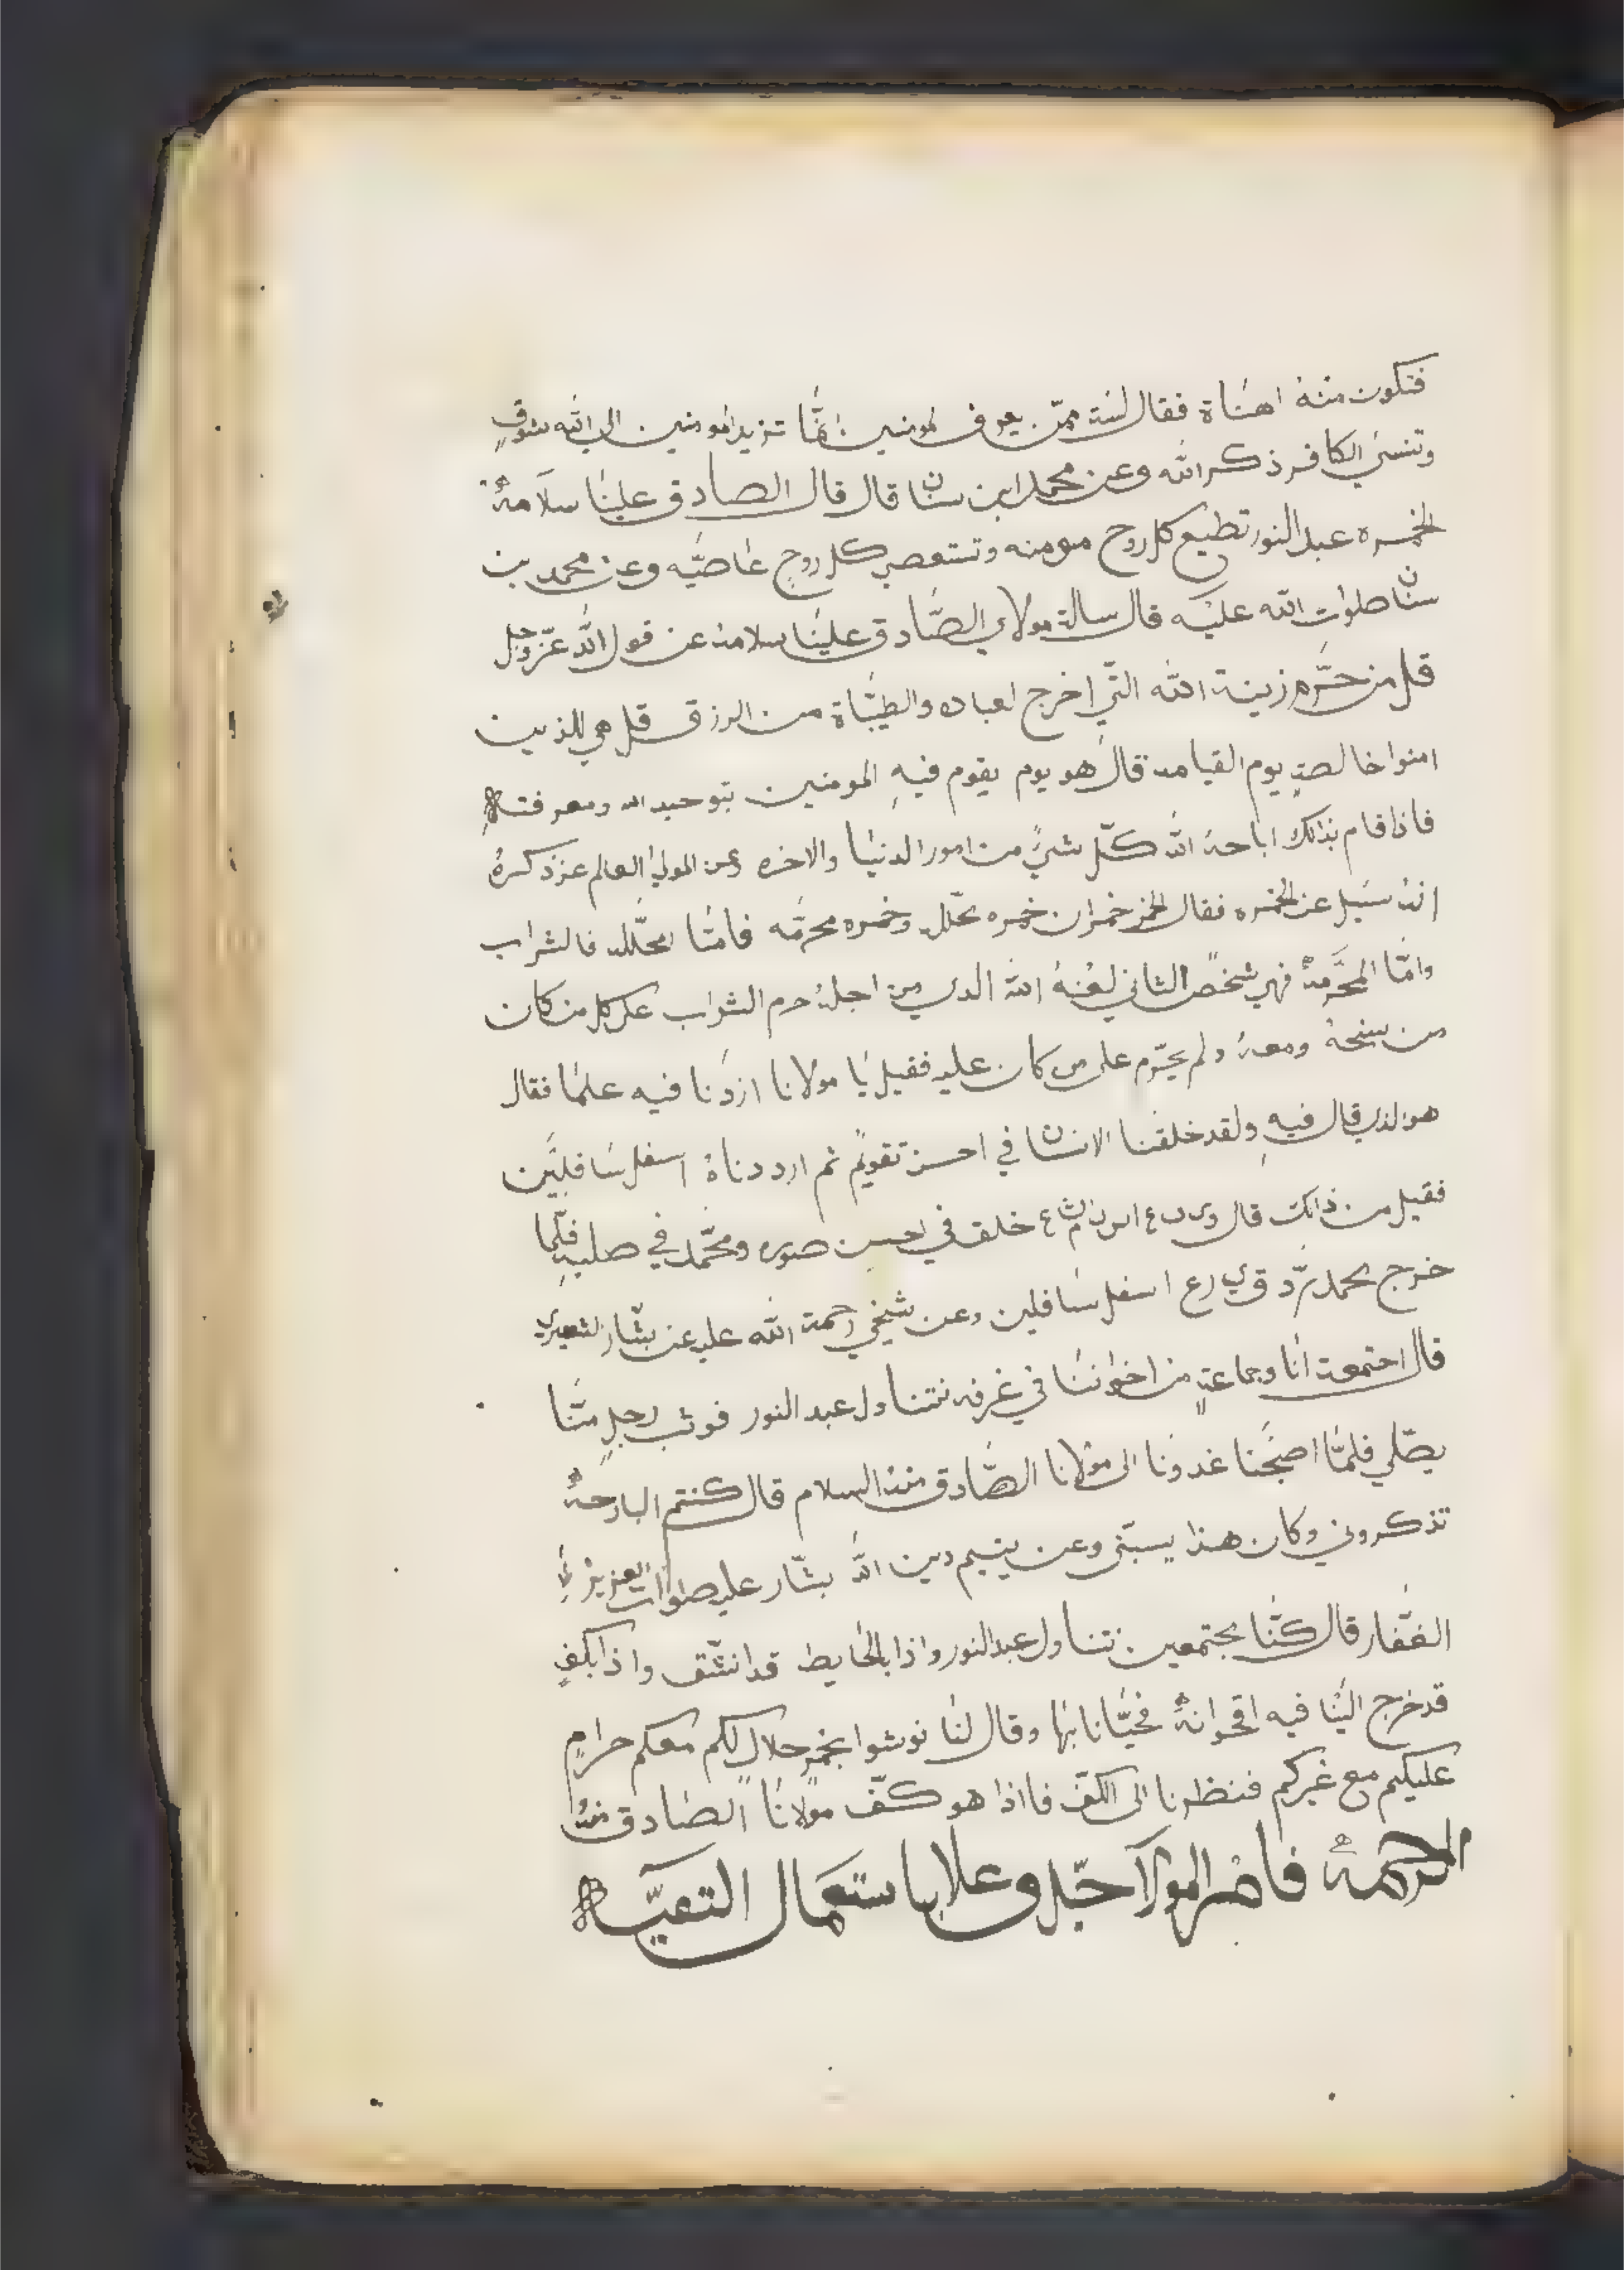 فتكون منهُ اهناة فقال لسة ممّن يعرف لمومنين انمّا تزيد المومنين الى الله شوقٍ
وتنسي الكافر ذكر الله وعن محمد ابن سنان قال قال الصادق علينا سلامهُ
الخمره عبد النور تطيع كل روح مومنه وتستعصي كل روحٍ عاصيّه وعن محمد بن
سنان صلوات الله عليه قال سالة مولاي الصّادق علينا سلامه عن قول الله عزّ وجل
قل من حرّم زينة الله التّي اخرج لعباده والطيّباة من الرزق قل هي للذين
امنوا خالصةٍ يوم القيامه قال هو يوم يقوم فيهِ المومنين بتوحيد الله ومعرفته
فاذا قام بذالك اباحهُ الله كلّ شيً من امور الدنيا والاخره وعن المولى العالم عز ذكرهُ
انهُ سيل عن الخمره فقال الخمر خمران خمره محلله وخمره محرمّه فامّا المحلّله فالشراب
وامّا المحرّمهُ فهي شخص الثاني لعنهُ الله الدي من اجلهُ حرم الشراب على كل من كان
من سنخهُ ومعهُ ولم يحرّم على من كان عليه فقيل يا مولانا ازدنا فيه علما فقال
هو الذي قال فيهِ ولقد خلقنا الانسان في احسن تقويم ثم ارددناهُ اسفل سافليّن
فقيل من ذالك قال خلق في احسن صوره ومحمّد في صلبهِ فلمّا
خرج محمد ردّ اسفل سافلين وعن شيخي رحمة الله عليه عن بشّار الشعيري
قال اجتمعة انا وجماعةٍ من اخواننا في غرفه نتناول عبد النور فوثب رجلٍ منّا
يصّلي فلمّا اصبحنا غدونا الى مولانا الصّادق منهُ السلام قال كنتم البارحهُ
تذكروني وكان هذا يسبّني وعن يتيم دين الله بشّار عليه صلوات العزيز
الغفّار قال كنّا مجتمعين نتناول عبد النور واذا بالحايط قد انشّق واذا بكفٍ
قد خرج الينا فيه اقحوانهُ فحيّانا بها وقال لنا نوشوا بخمرٍ حلال لكم معكم حرامٍ
عليكم مع غيركم فنظرنا الى الكفّ فاذا هو كفّ مولانا الصّادق منهُ
الرحمهُ فامر المولا جلّ وعلا باستعمال التقيّه